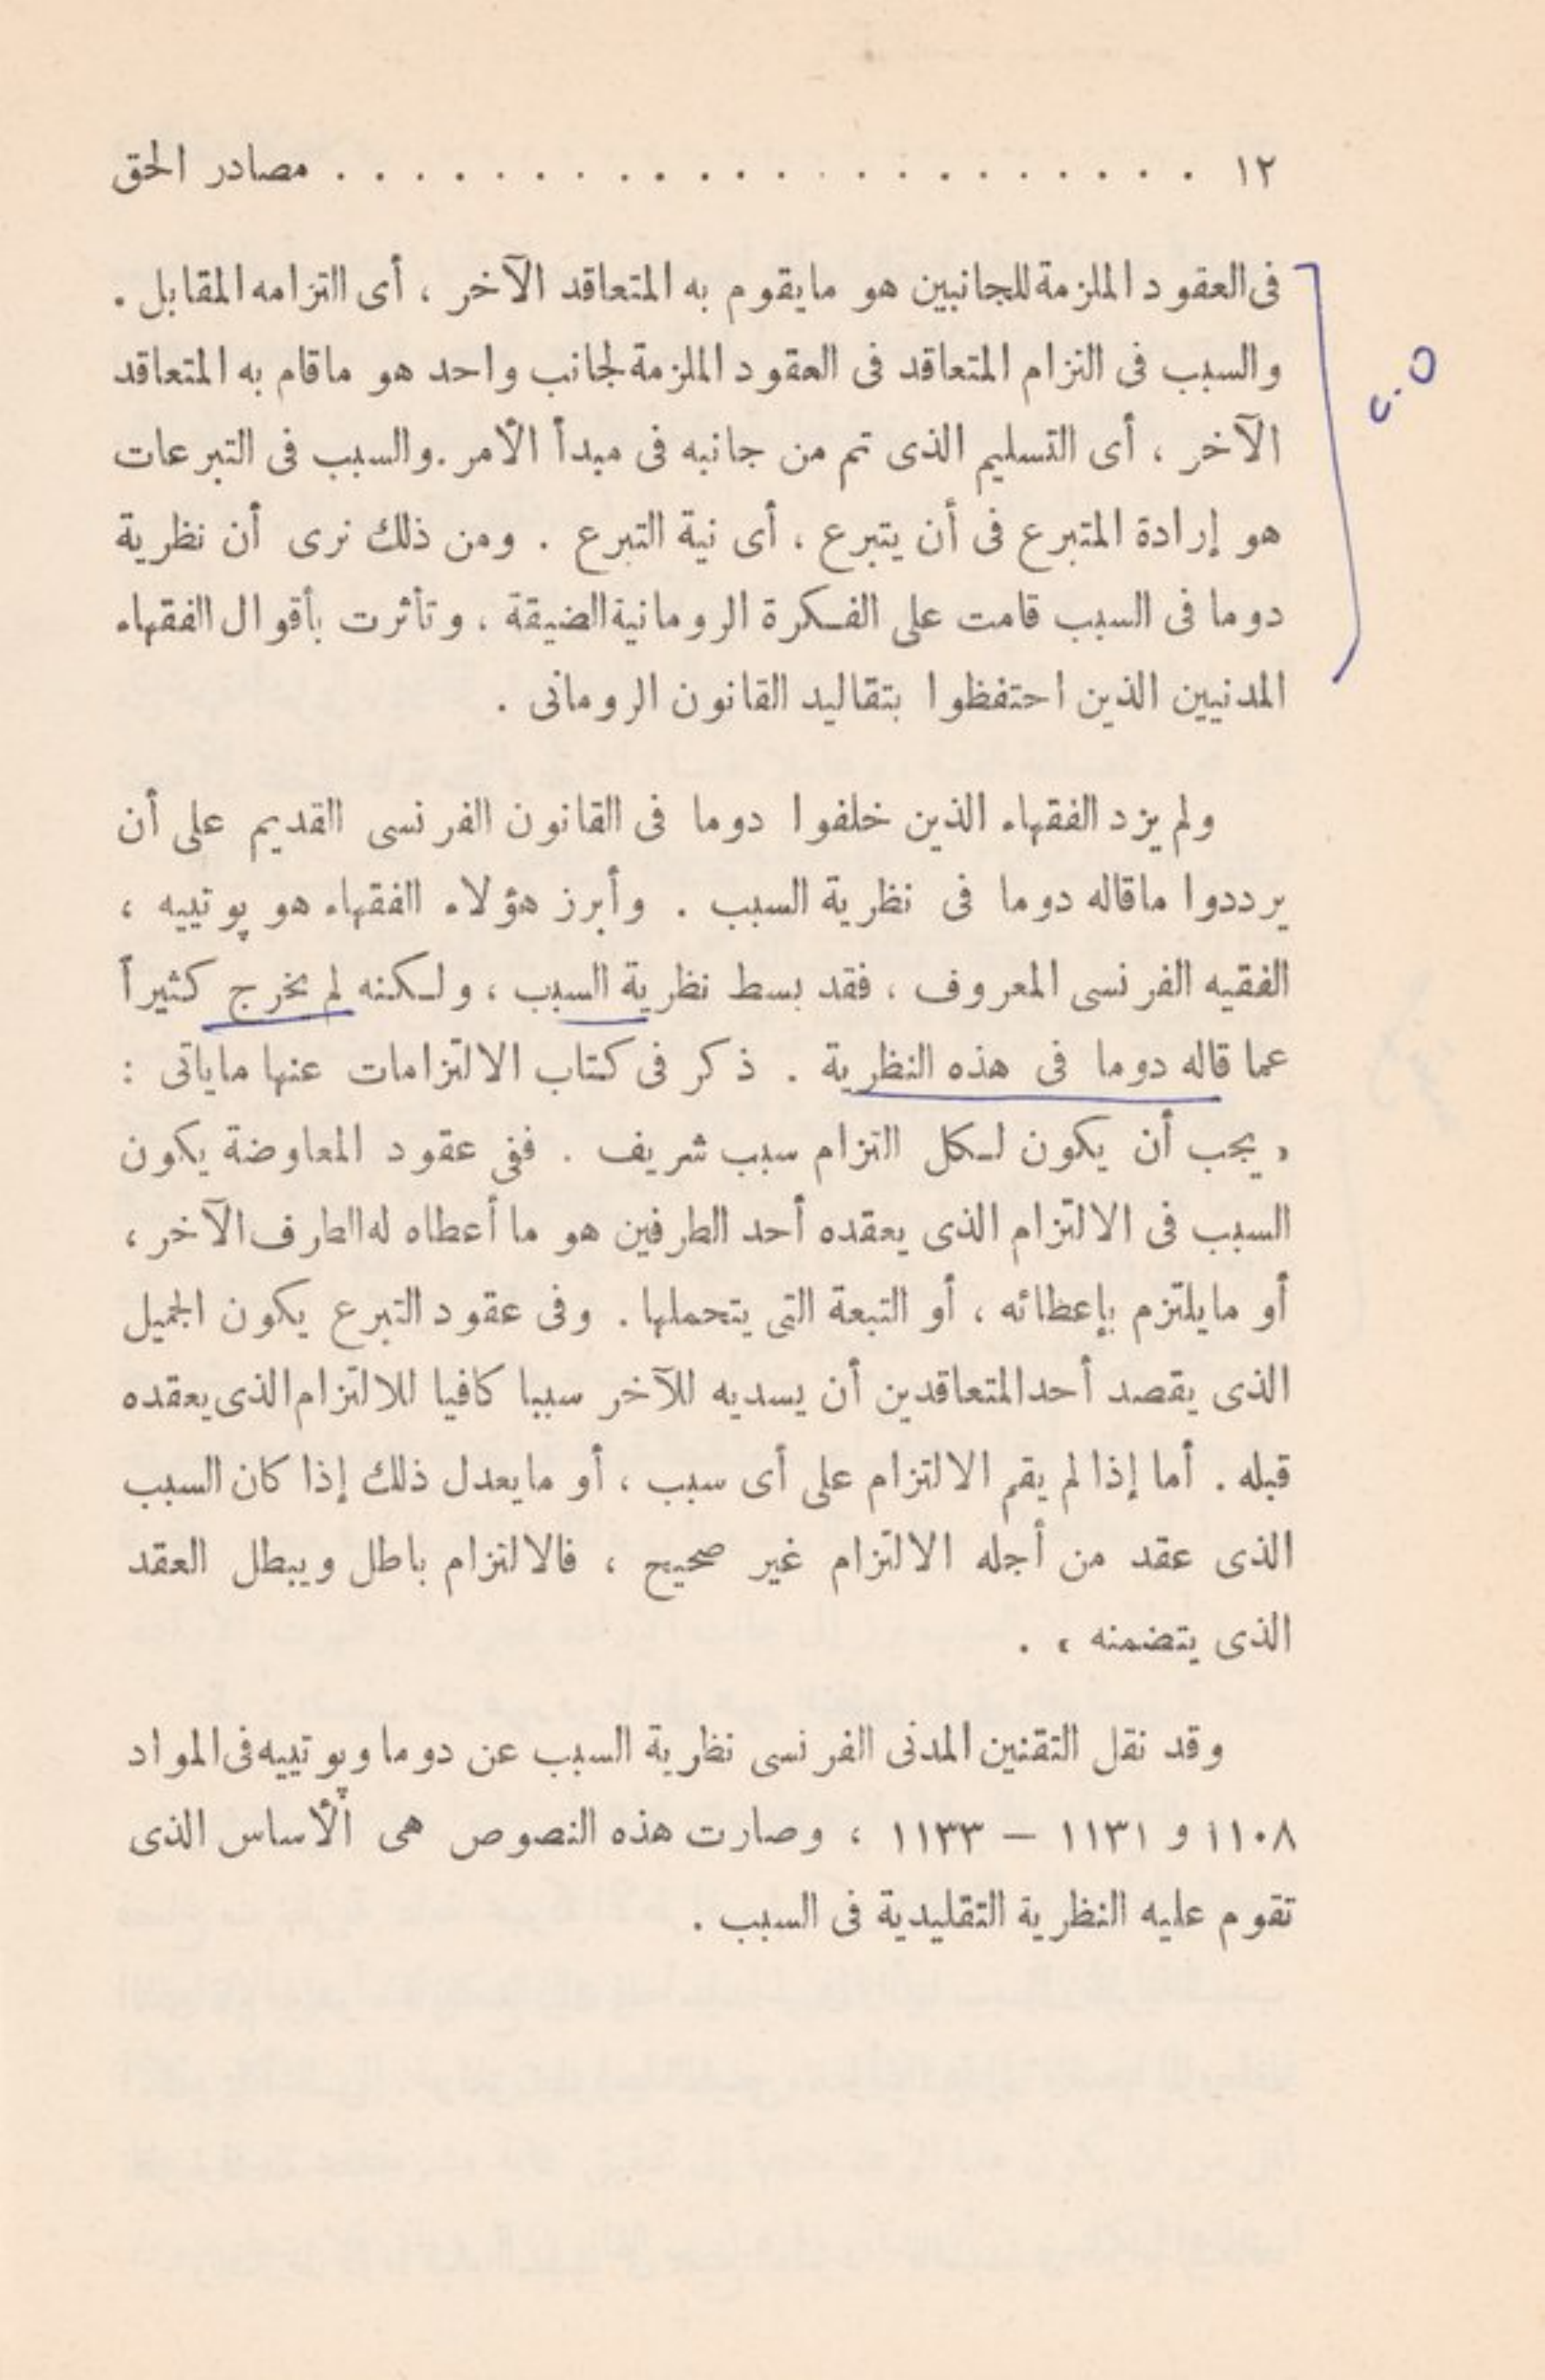 ١٢ . . . . . . . . . . . . . . . . . . . . . . . مصادر الحق
فى العقود الملزمة للجانبين هو مايقوم به المتعاقد الآخر ، أى التزامه المقابل .
والسبب فى التزام المتعاقد فى العقود الملزمة لجانب واحد هو ماقام به المتعاقد
الآخر ، أى التسليم الذى تم من جانبه فى مبدأ الأمر . والسبب فى التبرعات
هو إرادة المتبرع فى أن يتبرع ، أى نية التبرع . ومن ذلك نرى أن نظرية
دوما فى السبب قامت على الفكرة الرومانية الضيقة ، وتأثرت بأقوال الفقهاء
المدنيين الذين احتفظوا بتقاليد القانون الرومانى .
ولم يزد الفقهاء الذين خلفوا دوما فى القانون الفرنسى القديم على أن
يرددوا ماقاله دوما فى نظرية السبب . وأبرز هؤلاء الفقهاء هو پوتييه ،
الفقيه الفرنسى المعروف ، فقد بسط نظرية السبب ، ولكنه لم يخرج كثيراً
عما قاله دوما فى هذه النظرية . ذكر فى كتاب الالتزامات عنها ماياتى :
« يجب أن يكون لكل التزام سبب شريف . ففى عقود المعاوضة يكون
السبب فى الالتزام الذى يعقده أحد الطرفين هو ما أعطاه له الطرف الآخر ،
أو مايلتزم بإعطائه ، أو التبعة التى يتحملها . وفى عقود التبرع يكون الجميل
الذى يقصد أحد المتعاقدين أن يسديه للآخر سببا كافيا للالتزام الذى يعقده
قبله . أما إذا لم يقم الالتزام على أى سبب ، أو مايعدل ذلك إذا كان السبب
الذى عقد من أجله الالتزام غير صحيح ، فالالتزام باطل ويبطل العقد
الذى يتضمنه » .
وقد نقل التقنين المدنى الفرنسى نظرية السبب عن دوما وپوتييه فى المواد
١١٠٨ و ١١٣١ – ١١٣٣ ، وصارت هذه النصوص هى الأساس الذى
تقوم عليه النظرية التقليدية فى السبب .